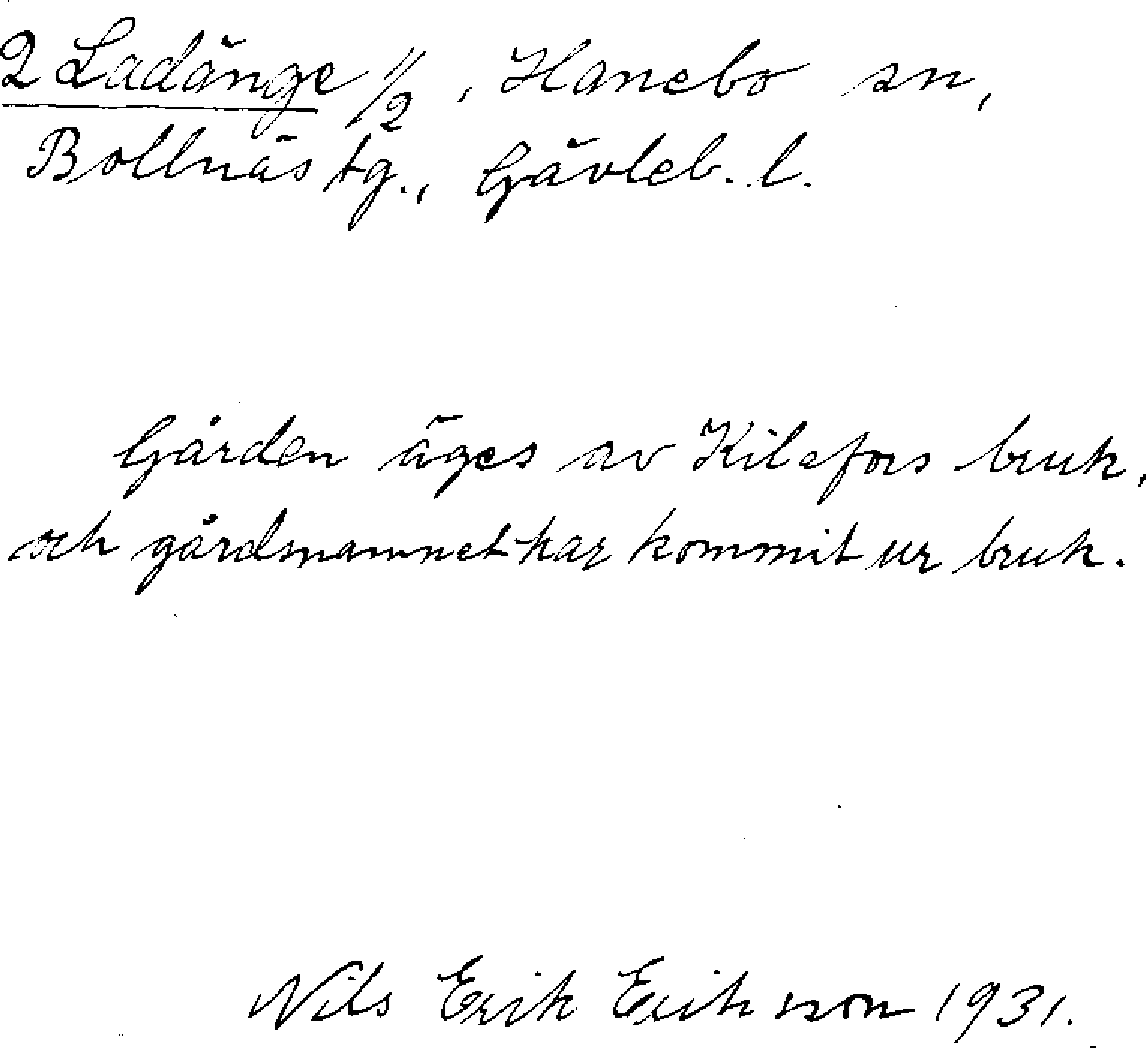 2 Ladänge 1/2, Hanebo sn,
Bollnäs tg., Gävleb. l.
Gården äges av Kilafors bruk,
och gårdsnamnet har kommit ur bruk.
Nils Erik Eriksson 1931.